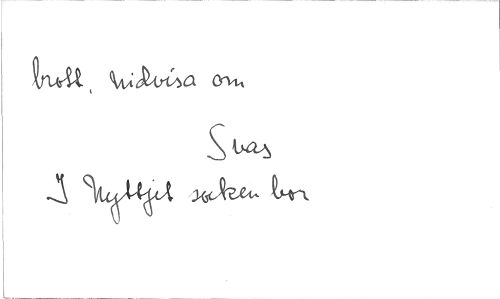 brott, nidvisa om
Svas
I Nyttjet socken bor